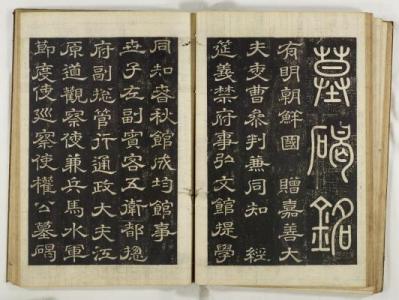 墓碣銘
有明朝鮮國 贈嘉善大
夫吏曹參判兼同知 經
筵義禁府事弘文館提學
同知春秋館成均館事
世子左副賓客五衛都摠
府副摠管行通政大夫江
原道觀察使兼兵馬水軍
節度使巡察使權公墓碣